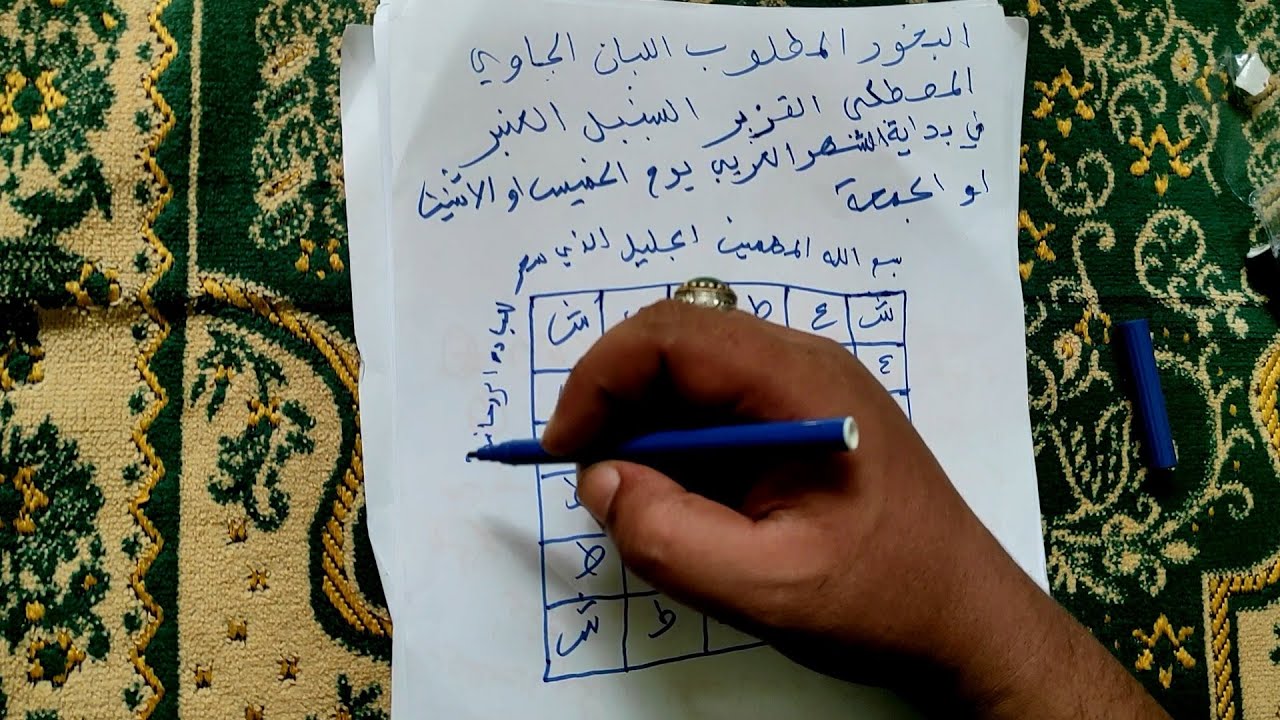 البخور المطلوب اللبان الجاوي
المصطكى القزبر السنبل العنبر
في بداية الشهر العربي يوم الخميس او الاثنين
او الجمعة
بسم الله المهيمن الجليل الذي سحر
لعباده
ش ع ط ش
٤
ط
ش ط